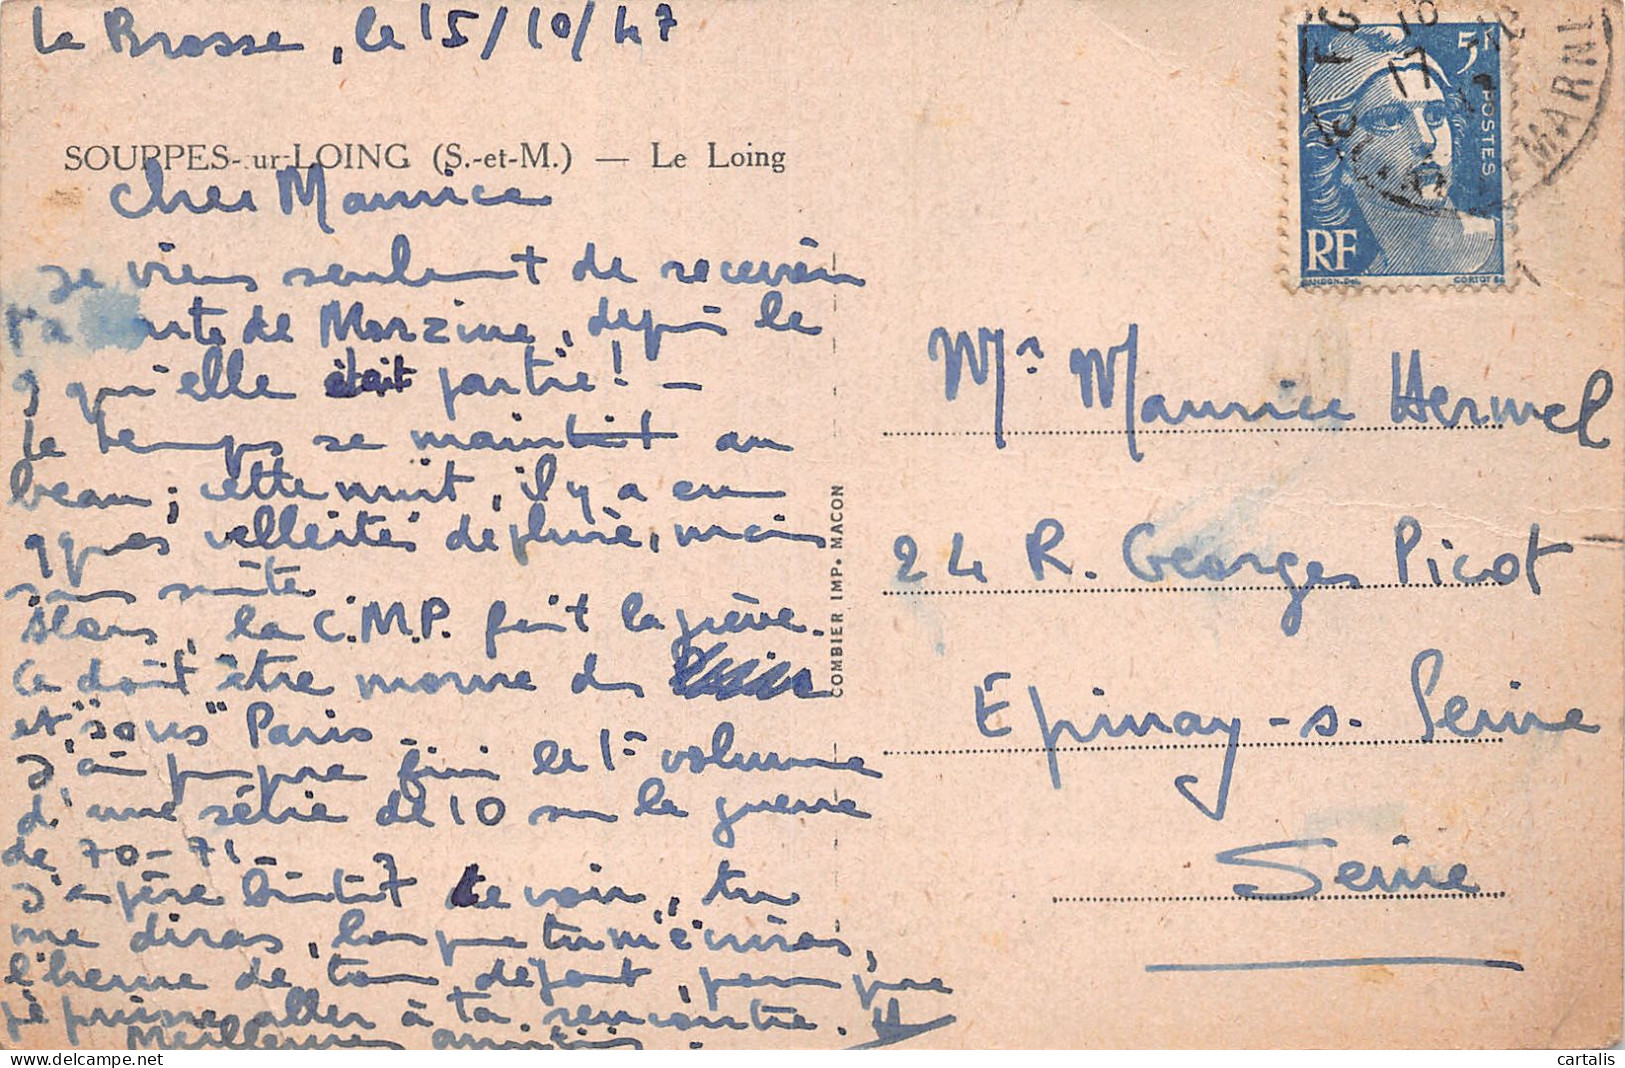 La Brosse, le 15/10/47
SOUPPES-sur-LOING (S.-et-M.) — Le Loing
Cher Maurice
Je viens seulement de recevoir
ta carte de Morzine, depuis le
9 qu'elle était partie! —
Le temps se maintient au
beau; cette nuit, il y a eu
qques velléités de pluie, mais
sans suite
Alors, la C.M.P. fait la grève.
Ce doit être morne dans
et "sous" Paris
J'ai presque fini le 1er volume
d'une série de 10 sur la guerre
de 70-71
J'espère bientôt te voir, tu
me diras, lorsque tu m'écriras,
l'heure de ton départ, pour que
je puisse aller à ta rencontre.
Meilleures amitiés.
COMBIER IMP. MACON
5F
POSTES
RF
GANDON. Del.
CORTOT Sc.
17
MARNE
Mr Maurice Hermel
24 R. Georges Picot
Epinay-s-Seine
Seine
cartalis